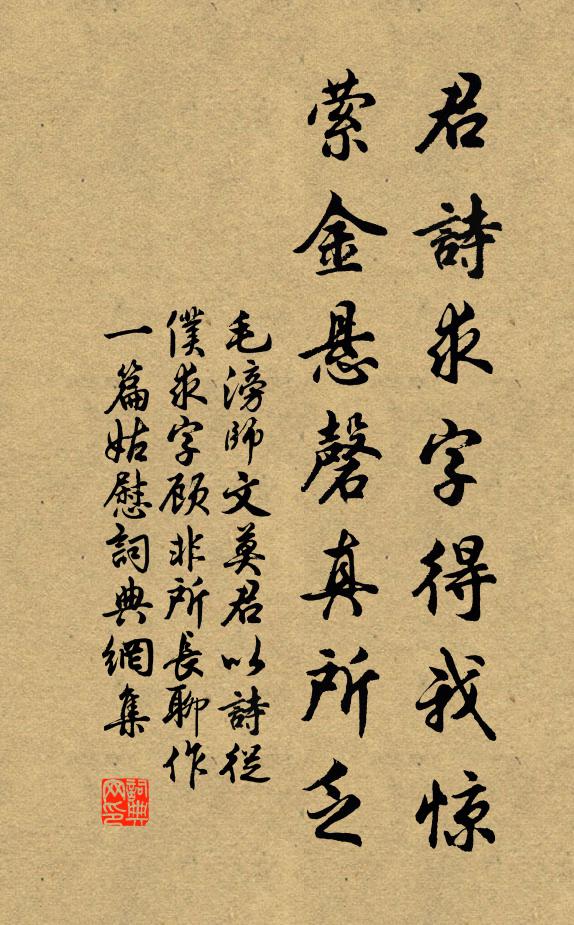 君詩求字得我惊
萦金悬磬真所乏
毛滂師文莫君以詩従
僕求字顾非所長聊作
一篇姑慰詞典網集
詞典网印